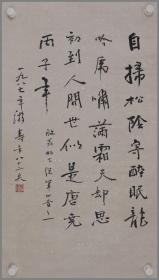 自掃松陰寄醉眠龍
吟虎嘯滿霜天却思
初到人間世似是唐堯
丙子年
一九八七年游壽年八十二